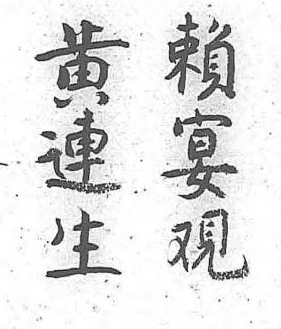 賴宴观
黄連生